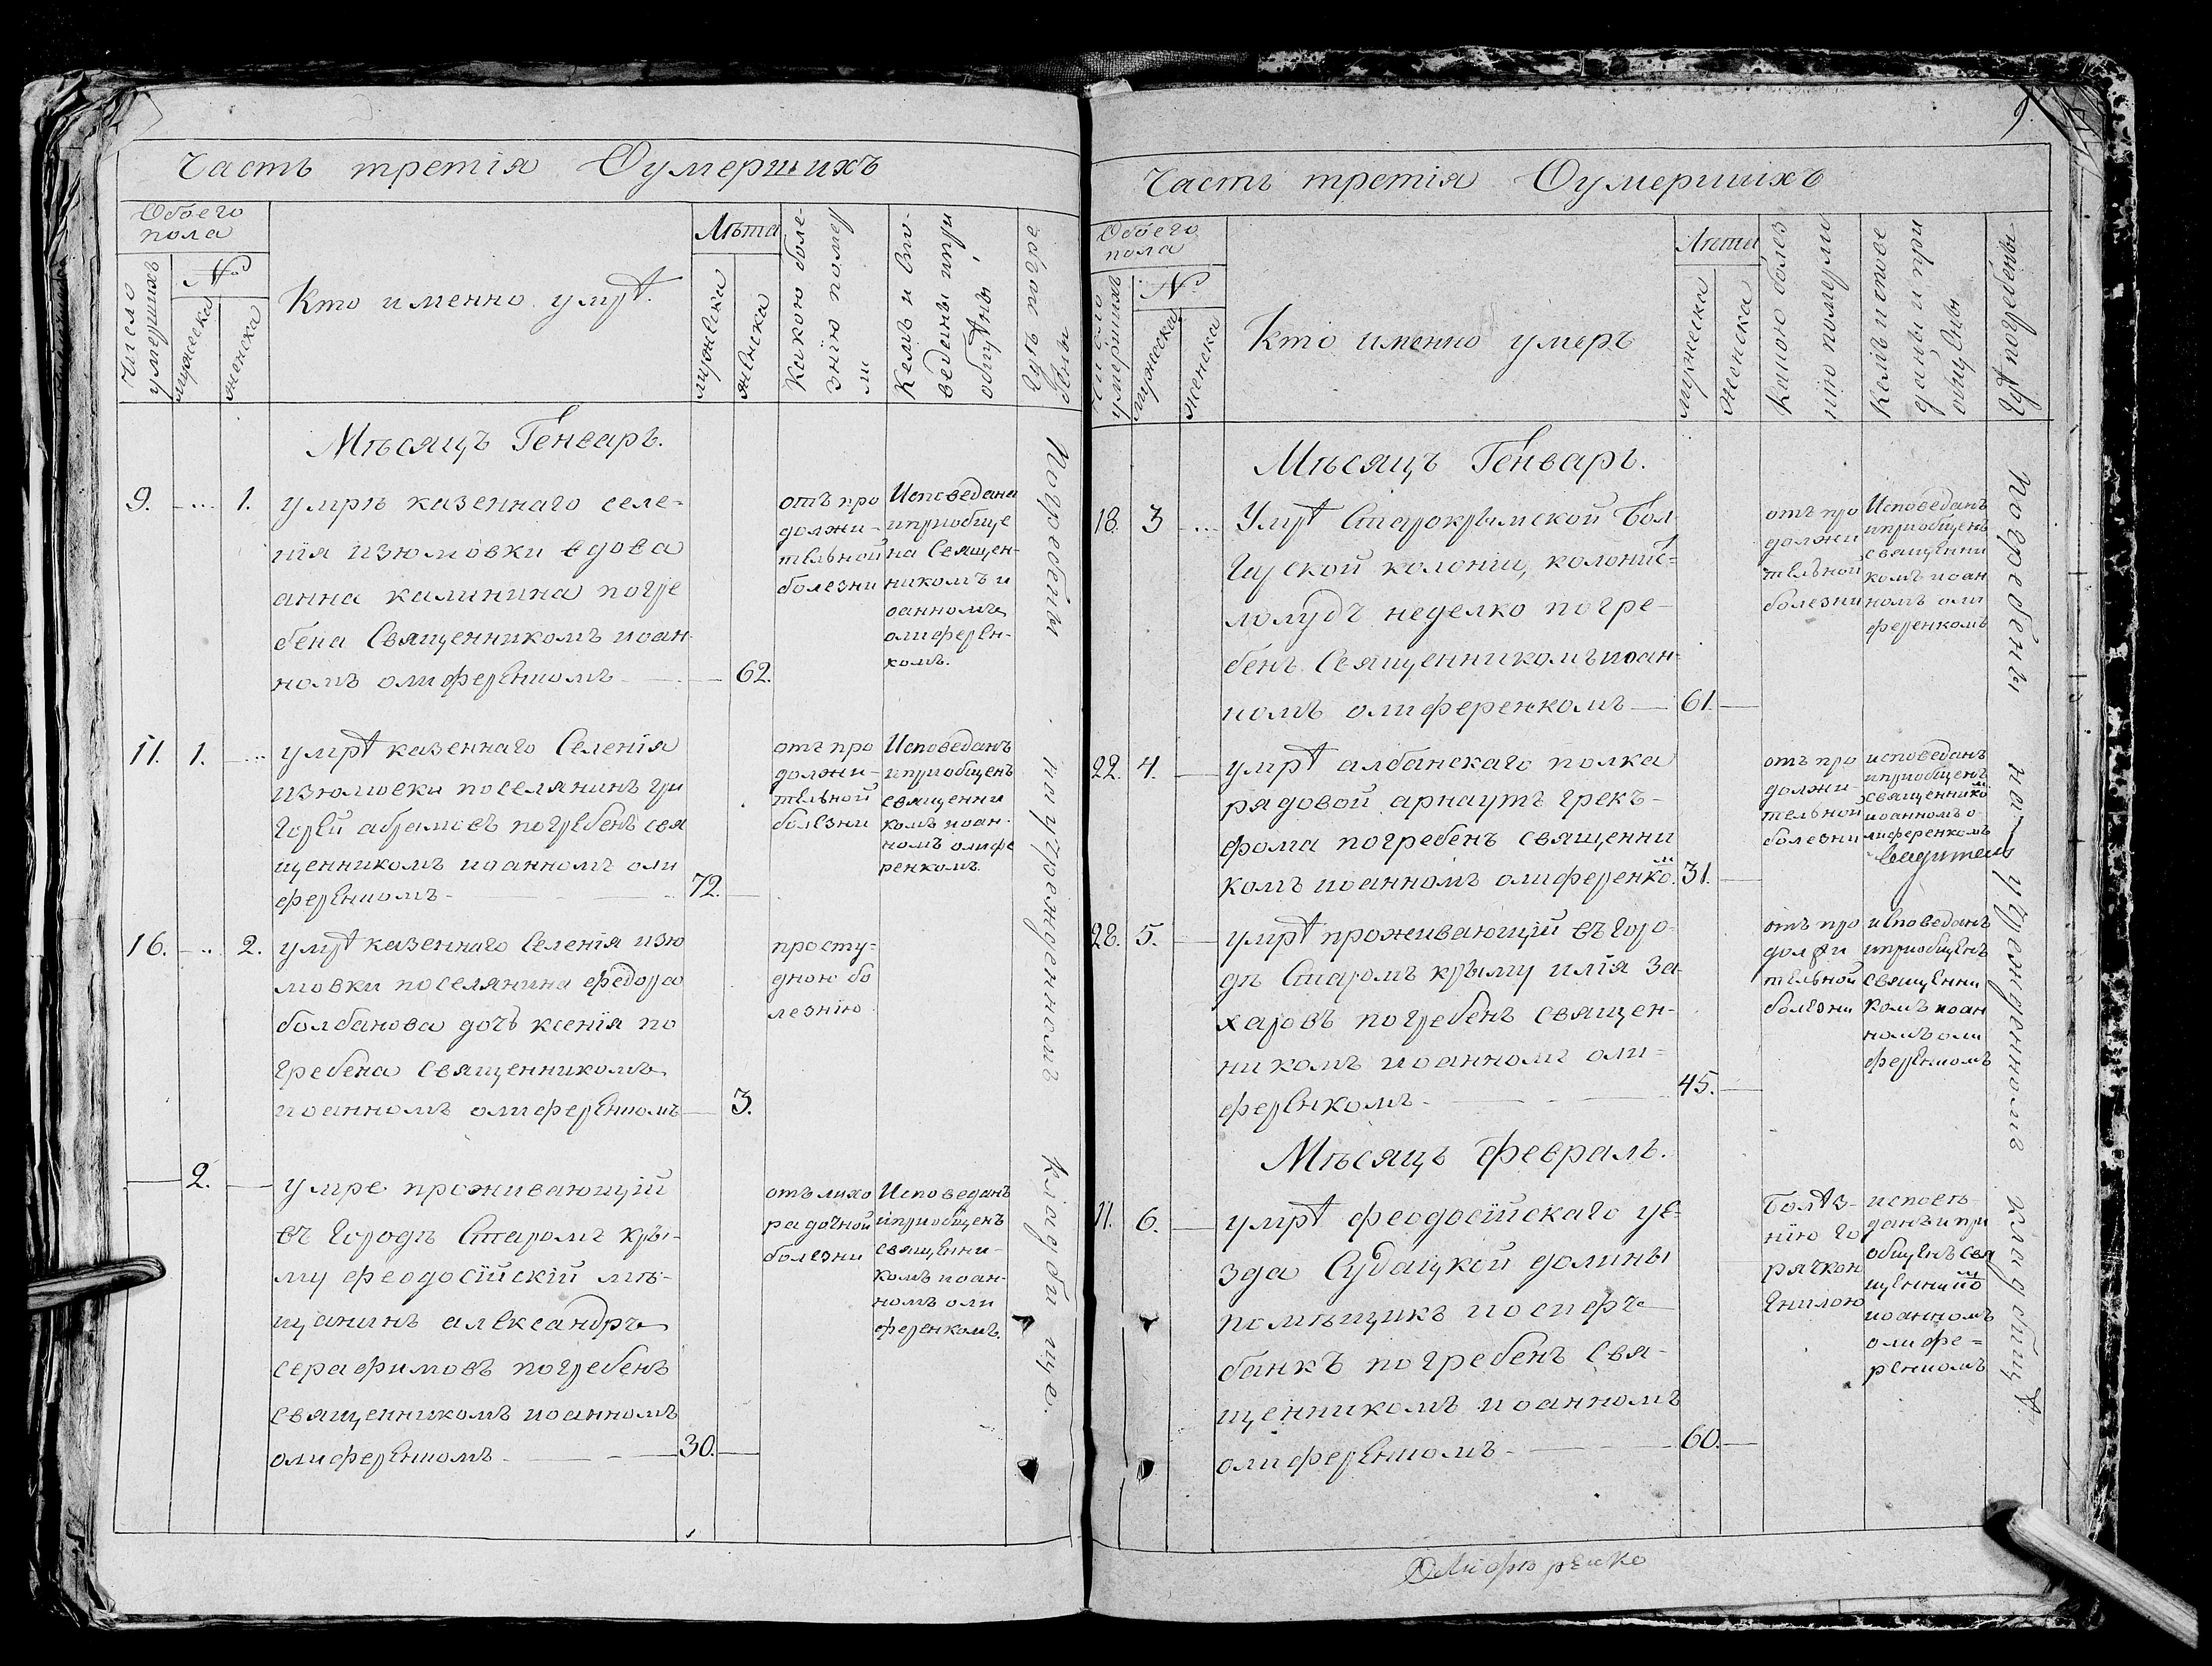 Часть третія Оумершихъ
Обоего
пола
№
Число
умершихъ
мужеска
женска
Кто именно умрѣ.
Лѣта
мужеска
женска
Какою боле-
знію помер
ли
Кемъ и
ведены и при
общѣны
Мѣсяцъ Генварь.
9. 1.
умрѣ казеннаго селе-
нія изюмовки вдова
анна калинина погре
бена Священникомъ иоан
номъ олиференкомъ
62.
отъ про
должи-
тельной
болезни
Исповедана
и приобще
на Священ-
никомъ и
оанномъ
олиферен-
комъ.
11. 1.
умрѣ казеннаго Селенія
изюмовки поселянинъ гри
горей абрамовъ погребенъ свя
щенникомъ иоанномъ оли
ференкомъ
72.
отъ про
должи-
тельной
болезни
Исповеданъ
и приобщенъ
священни
комъ иоан-
номъ олифе
ренкомъ.
16. 2.
умрѣ казеннаго Селенія изю
мовки поселянина федора
болбанова дочь ксенія по
гребена священникомъ
иоанномъ олиференкомъ
3.
просту-
дною бо
лезнію
2.
умре проживающій
въ Городѣ Старомъ кры-
му феодосійскій мѣ-
щанинъ александръ
серафимовъ погребенъ
священникомъ иоанномъ
олиференкомъ
30.
отъ лихо
радочной
болезни
Исповеданъ
и приобщенъ
священни-
комъ иоан-
номъ оли
ференкомъ.
Погребены на учрежденномъ кладбище.
9.
Часть третія Оумершихъ
Обоего
пола
№
Число
умершихъ
мужеска
женска
Кто именно умеръ
Лета
мужеска
женска
Какою болез
нію померли
Кемъ и испове
даны и при
общены
Гдѣ погребены
Мѣсяцъ Генварь.
18. 3
Умрѣ Старокрымской Бол-
гарской колоніи, колонис-
неделко погре-
бенъ Священникомъ иоан-
номъ олиференкомъ
61.
отъ про
должи
тельной
болезни
Исповеданъ
и приобщенъ
священни
комъ иоан
номъ оли
ференкомъ
22. 4.
умрѣ албанскаго полка
рядовой арнаутъ грекъ-
фома погребенъ священни
комъ иоанномъ олиференком.
31.
отъ про
должи-
тельной
болезни
исповеданъ
и приобщенъ
священником
иоанномъ о
лиференкомъ
28. 5.
умрѣ проживающій въ горо-
дѣ Старомъ крыму илія за-
харовъ погребенъ священ-
никомъ иоанномъ оли-
ференкомъ
45.
отъ про
должи
тельной
болезни
исповеданъ
и приобщенъ
священни
комъ иоан
номъ оли
ференкомъ
Мѣсяцъ февраль.
11. 6.
умрѣ феодосійскаго уе-
зда Судацкой долины
помѣщикъ иосифъ
банкъ погребенъ свя-
щенникомъ иоанномъ
олиференкомъ
60.
Болѣз-
нію го
рячкою
гнилою
исповѣ-
данъ и при
общенъ свя
щенником
иоанномъ
олифе-
ренкомъ
Погребены на учрежденномъ кладбищѣ.
Олифѣренко